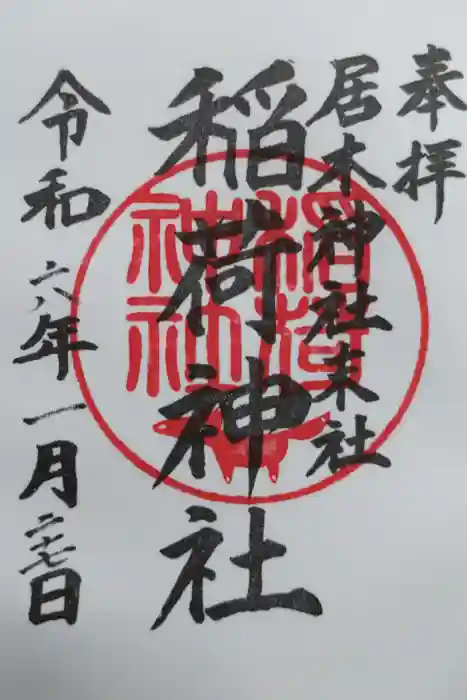 奉拝
居木神社末社
稲荷神社
令和六年一月二十七日
稲荷
神社